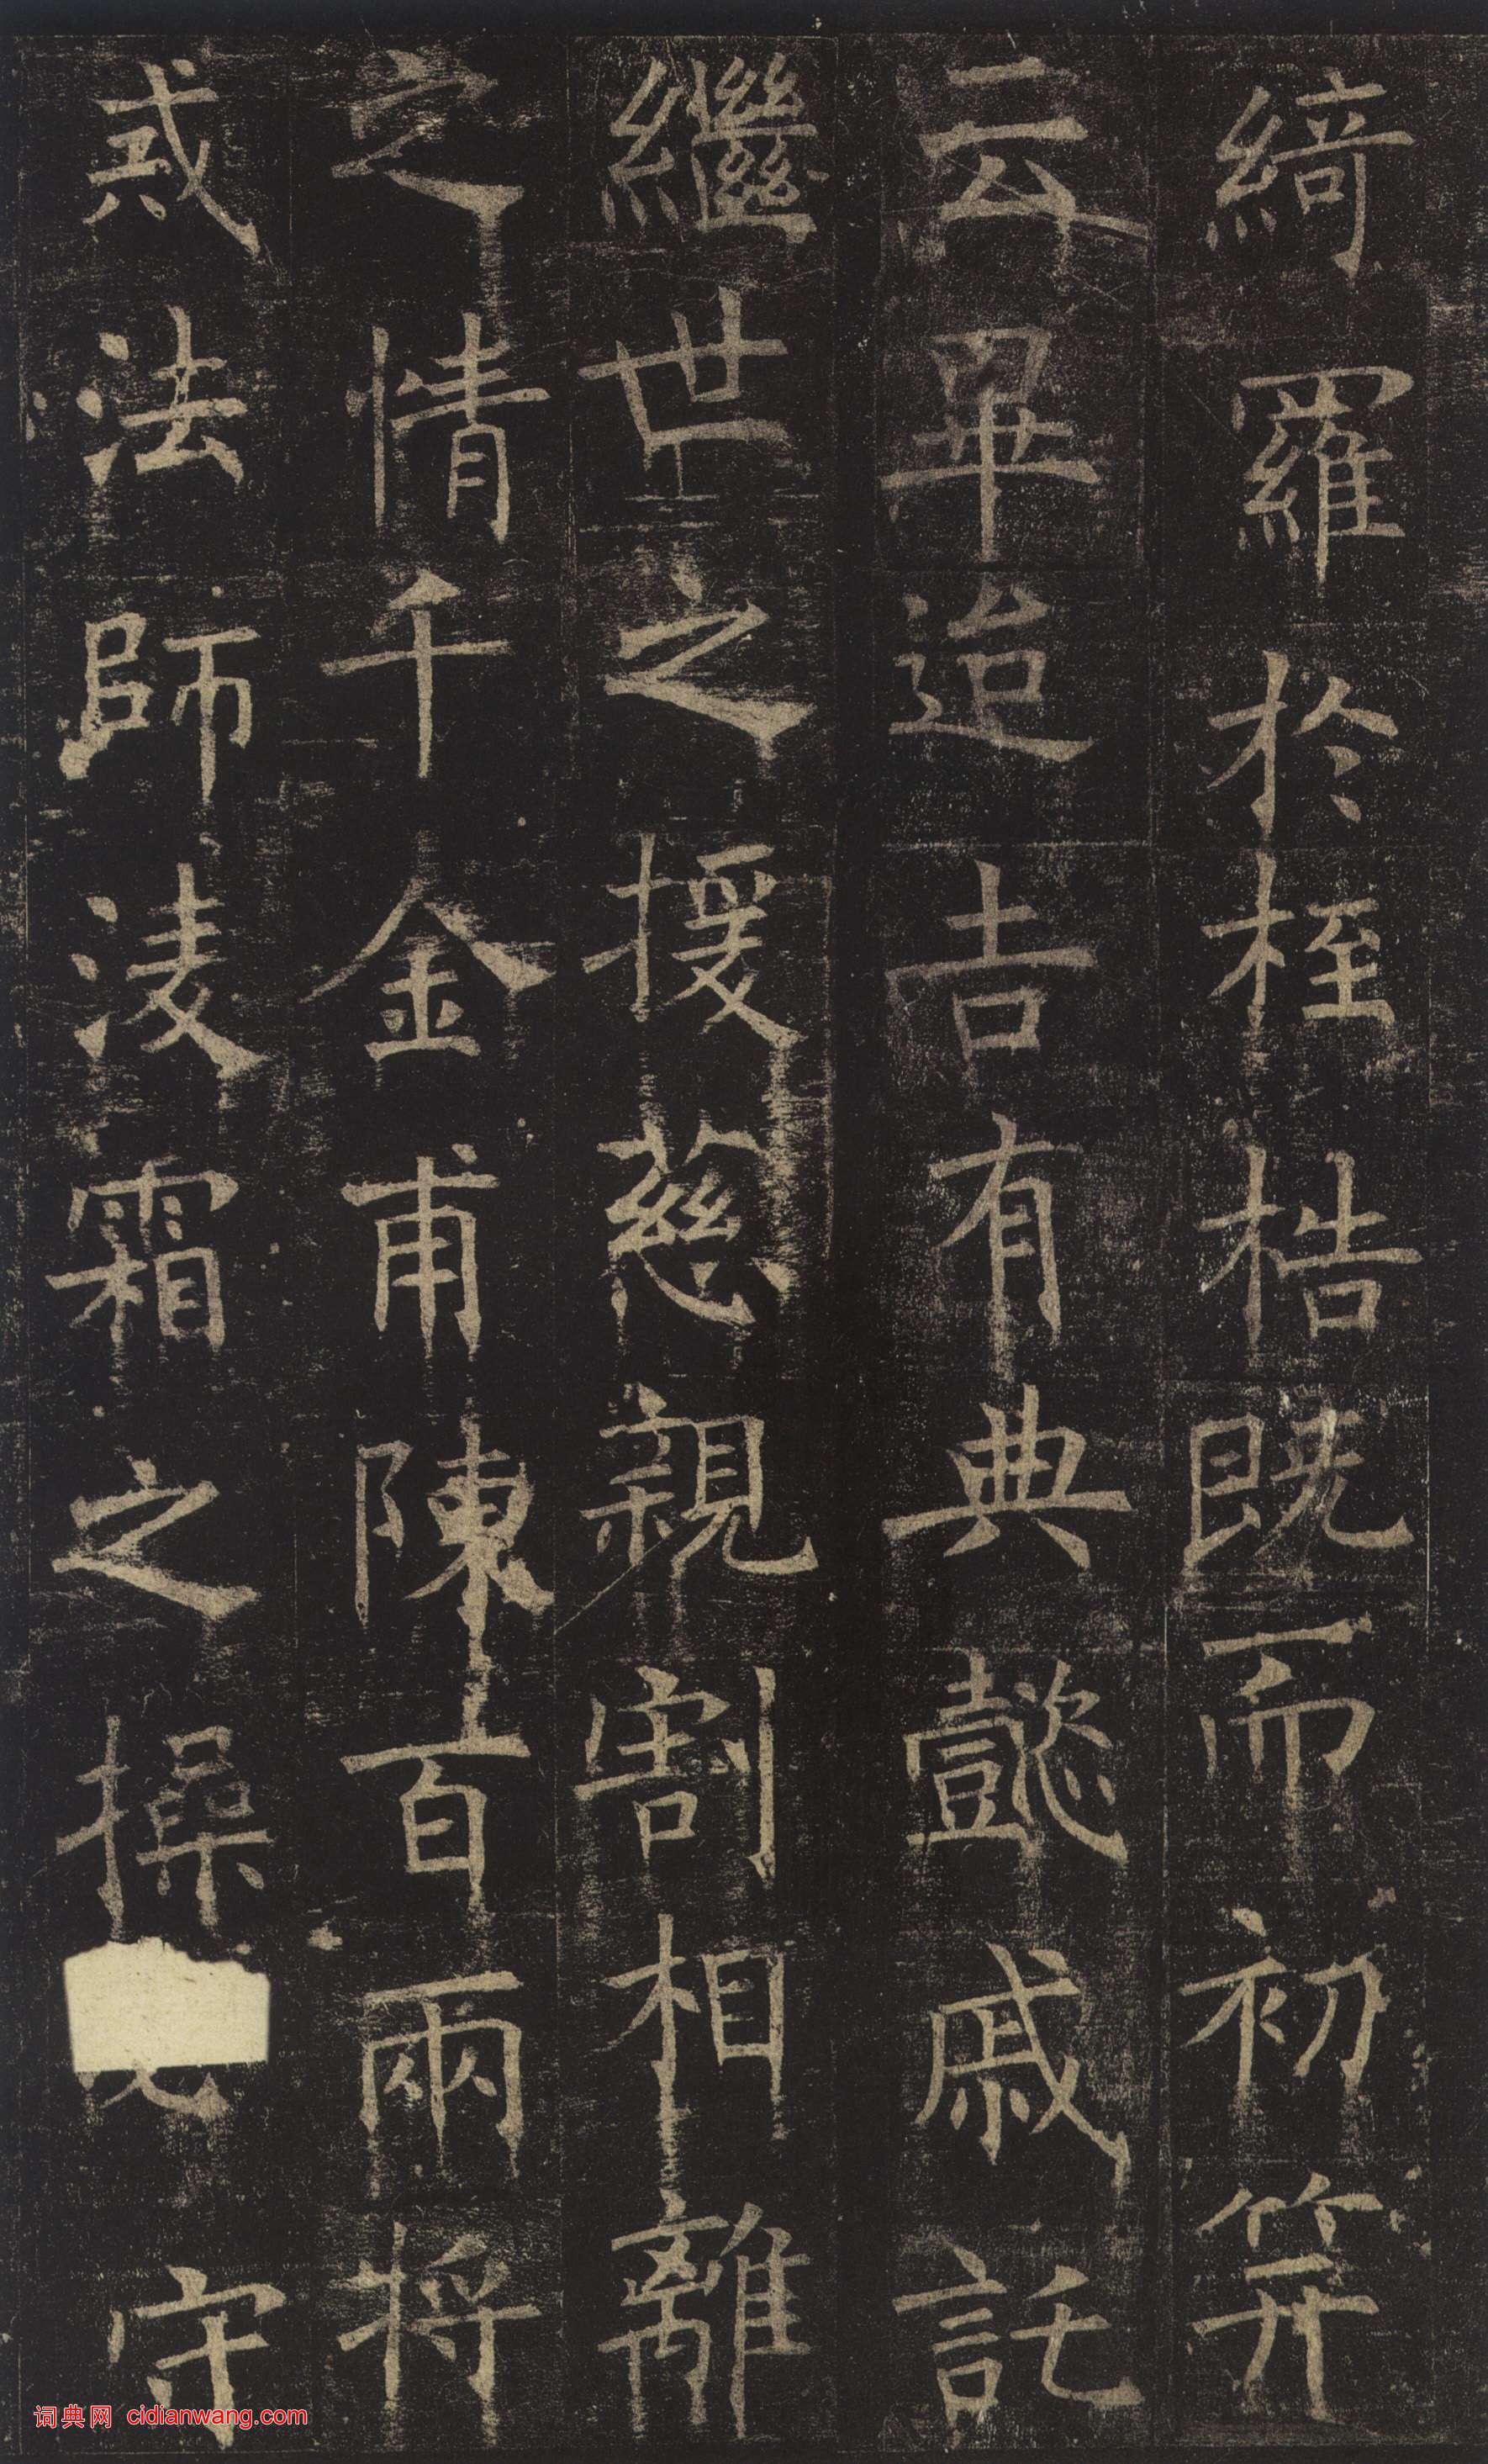 綺羅於桎梏既而初笄
云畢迨吉有典懿戚託
繼世之援慈親割相離
之情千金甫陳百兩將
戒法師淩霜之操守
词典网 cidianwang.com